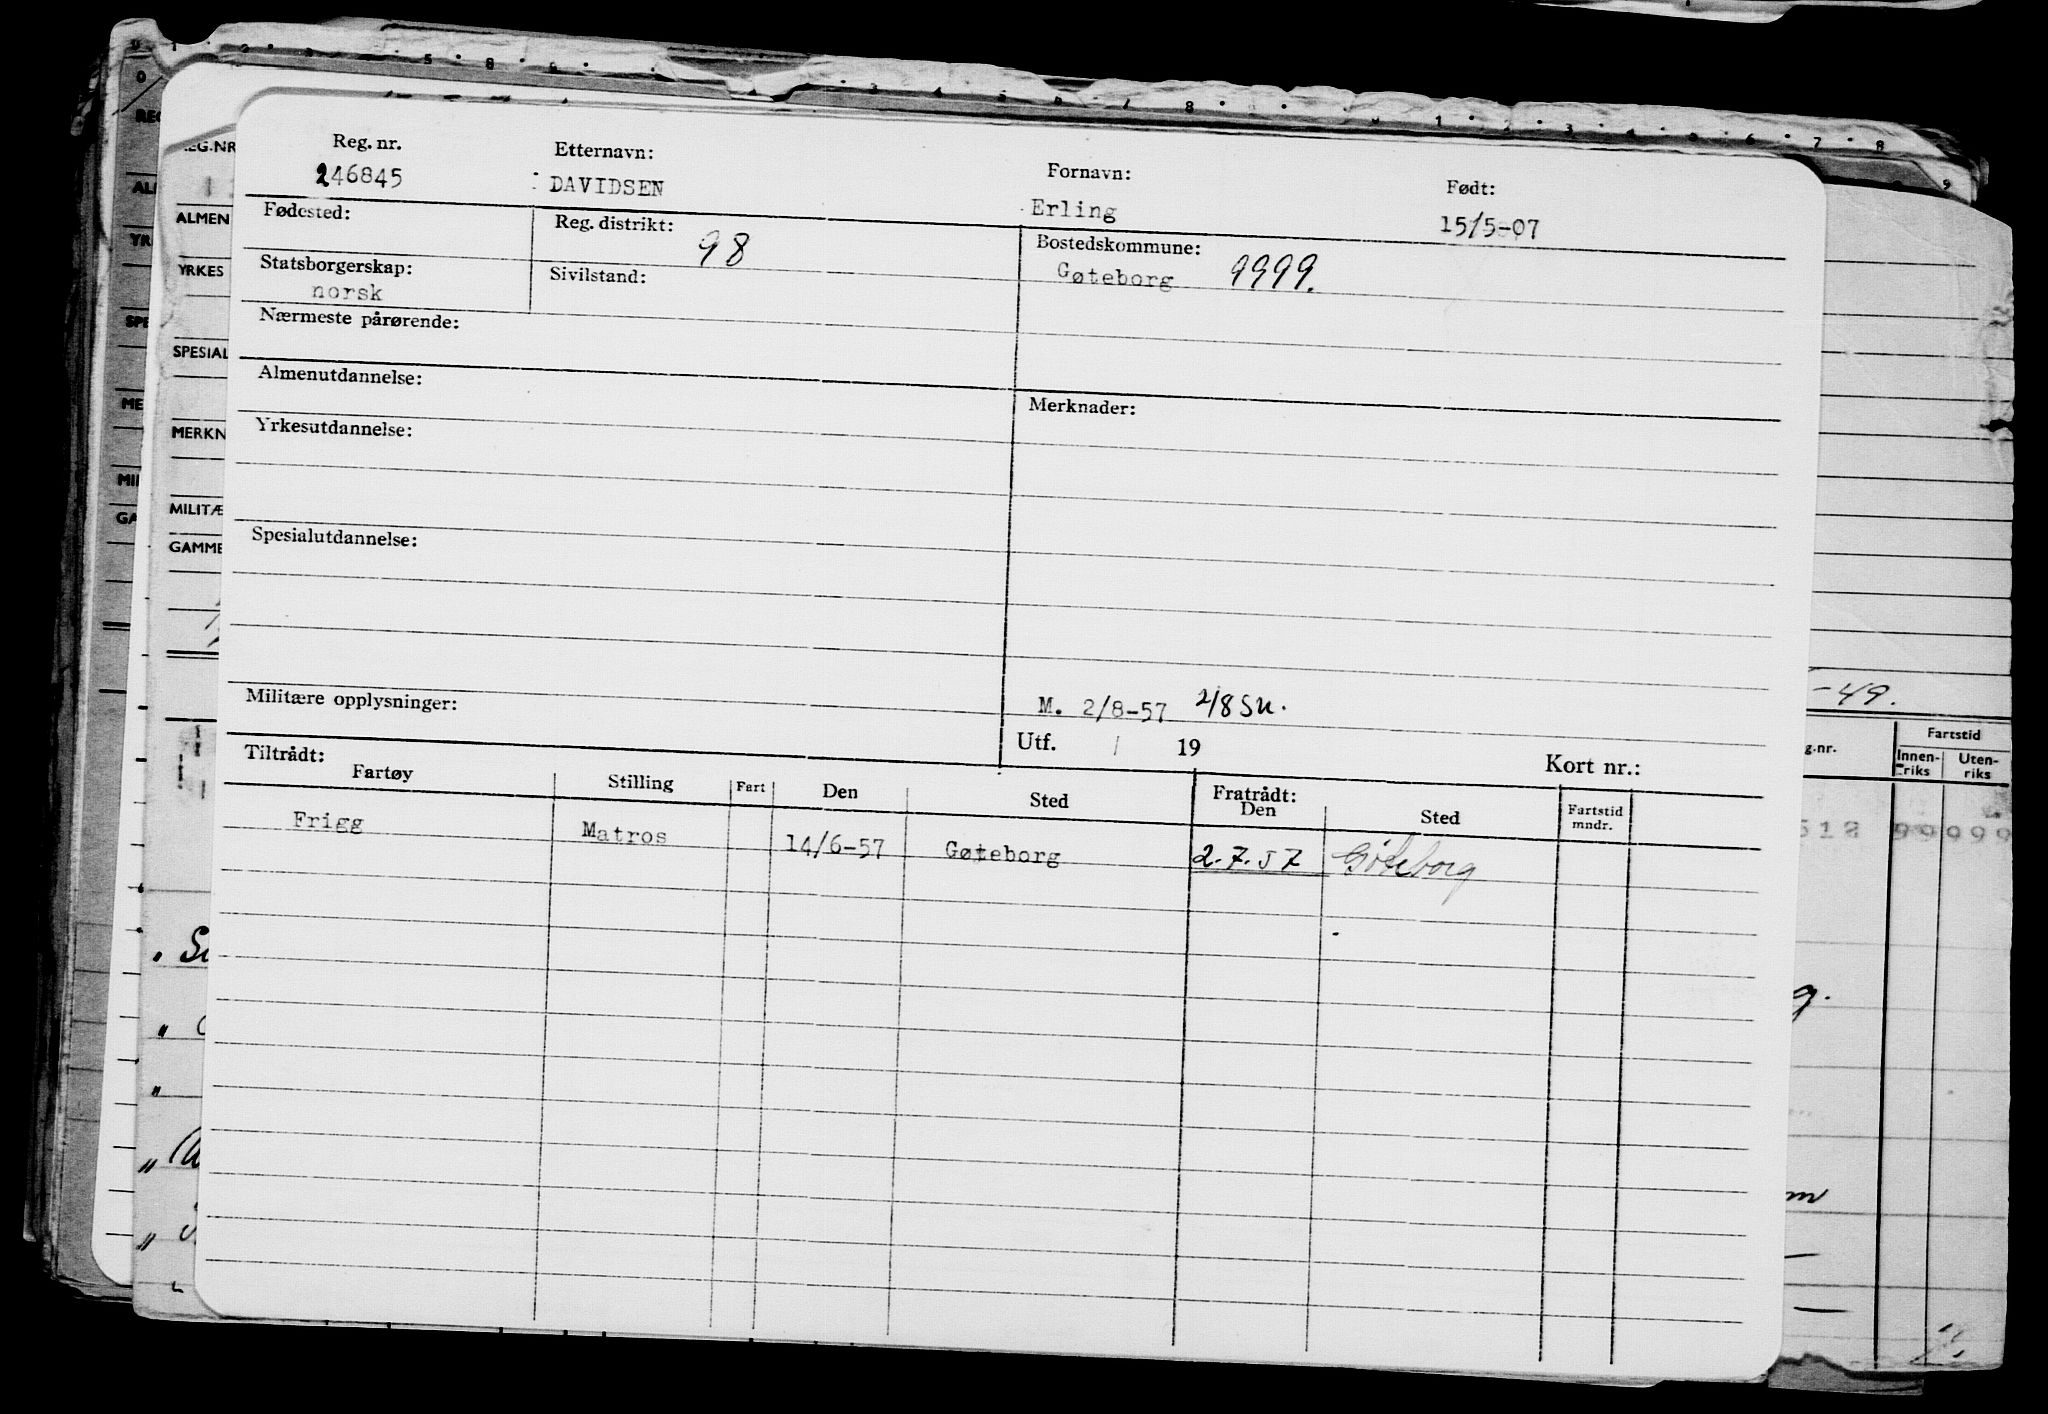 Reg. nr. Etternavn: Fornavn: Født:
246845 DAVIDSEN Erling 15/5-07
Fødested: Reg. distrikt: 98 Bostedskommune:
Gøteborg 9999.
Statsborgerskap: Sivilstand:
norsk
Nærmeste pårørende:
Almenutdannelse: Merknader:
Yrkesutdannelse:
Spesialutdannelse:
Militære opplysninger: M. 2/8-57 2/8 Su.
Utf. / 19 Kort nr.:
Tiltrådt: Fratrådt:
Fartøy Stilling Fart Den Sted Den Sted Fartstid
mndr.
Frigg Matros 14/6-57 Gøteborg 2.7.57 Göteborg
REG.NR
ALMEN
YRKES
SPESIAL
MERKN
MILITÆ
GAMME
-49.
g.nr. Fartstid
Innen-
riks Uten-
riks